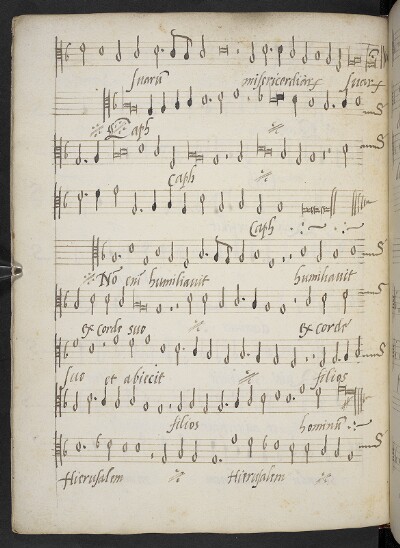 suarū misericordiarx suarx
Caph
Caph
Caph
Nō enī humiliauit humiliauit
ex corde suo ex corde
suo et abiecit filios
filios hominū
Hierusalem Hierusalem